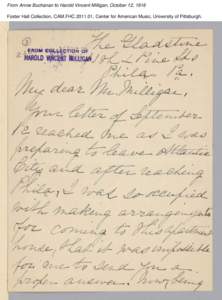 From Anne Buchanan to Harold Vincent Milligan, October 12, 1918
Foster Hall Collection, CAM.FHC.2011.01, Center for American Music, University of Pittsburgh.
The Gladstone
FROM COLLECTION OF
HAROLD VINCENT MILLIGAN
Pine Sts
Phila Pa.
My dear Mr. Milligan,
Your letter of September
reached me as I was
preparing to leave Atlantic
City and after reaching
Phila, I was so occupied
with making arrangements
for coming to this apartment
house, that it was impossible
for me to send you a
proper answer.